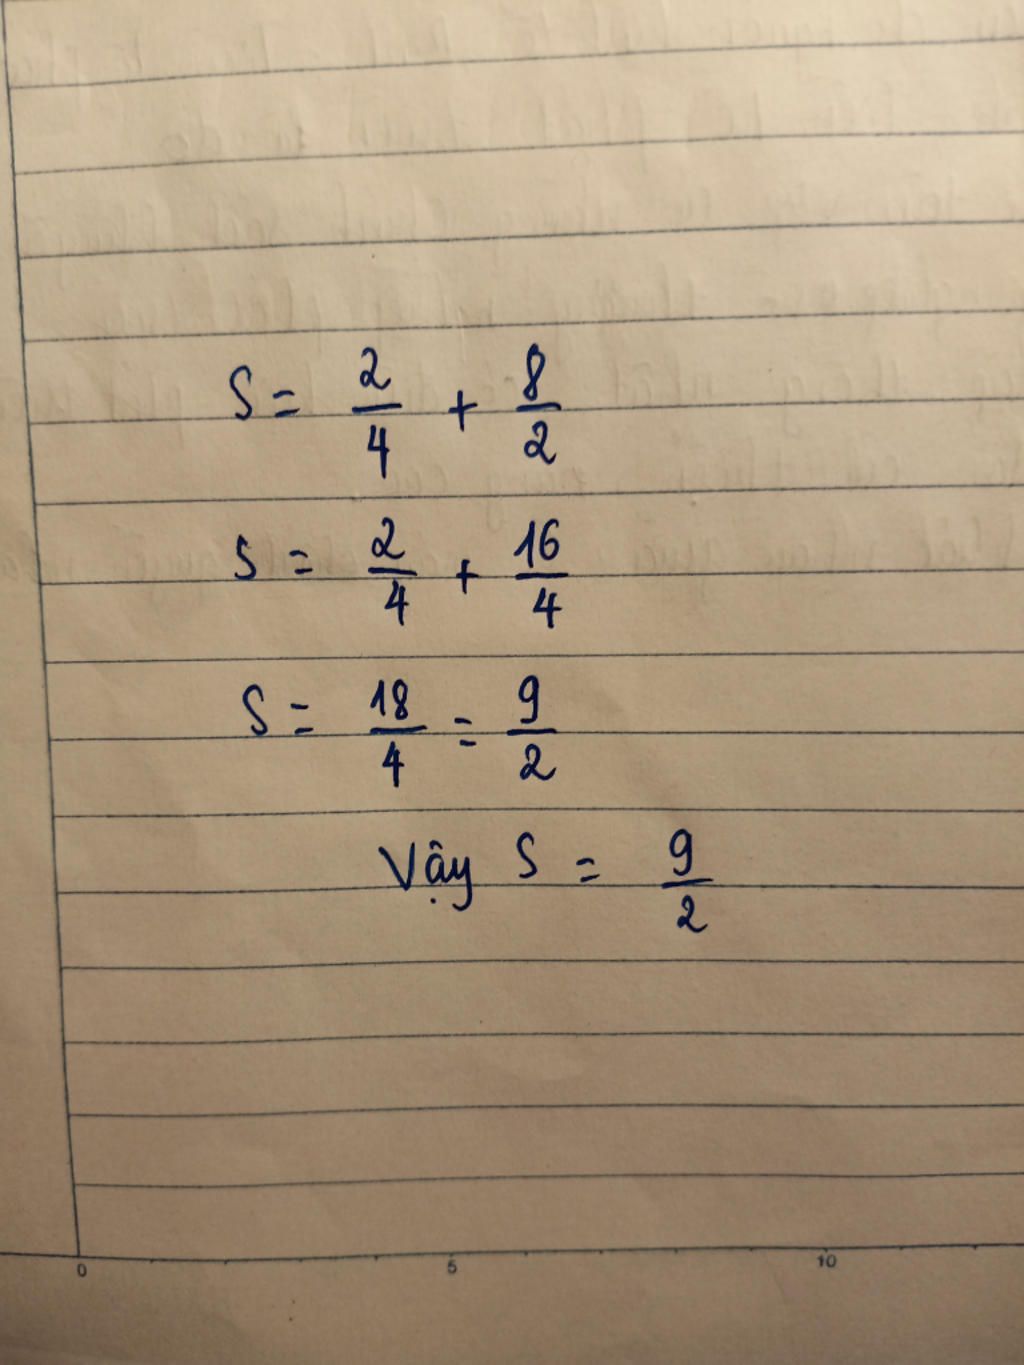 S = 2/4 + 8/2
S = 2/4 + 16/4
S = 18/4 = 9/2
Vậy S = 9/2
0 5 10